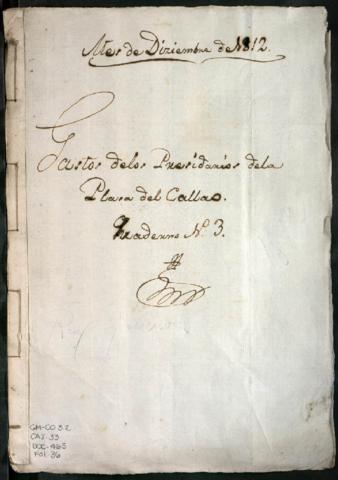 Mes de Diziembre de 1812.
Gastos delos Presidarios dela
Plasa del Callao.
Quaderno N.º 3.
GM-CO 3.2
CAJ. 33
DOC. 463
Fol. 36